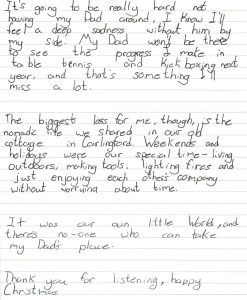 It's going to be really hard not
having my Dad around, I know I'll
feel a deep sadness without him by
my side. My Dad won't be there
to see the progress I make in
table tennis and kickboxing next
year, and that's something I'll
miss a lot.
The biggest loss for me, though, is the
nomadic life we shared in our old
cottage in Carlingford. Weekends and
holidays were our special time - living
outdoors, making tools, lighting fires and
just enjoying each others company
without worrying about time.
It was our own little World, and
there's no-one who can take
my Dad's place.
Thank you for listening, happy
Christmas